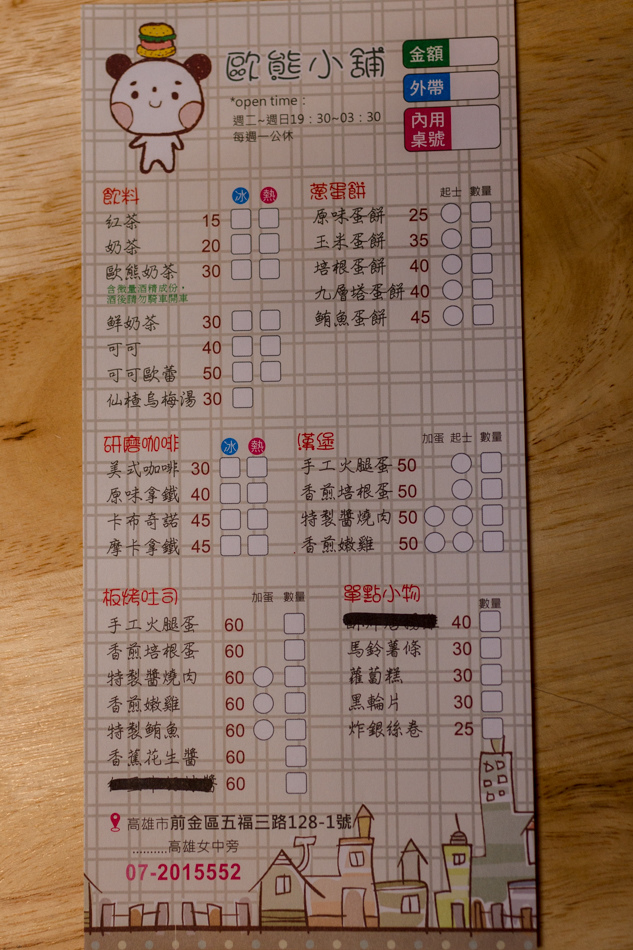 歐熊小舖
*open time：
週二~週日19：30~03：30
每週一公休
金額
外帶
內用
桌號
飲料 冰 熱
紅茶 15
奶茶 20
歐熊奶茶 30
含微量酒精成份，
酒後請勿騎車開車
鮮奶茶 30
可可 40
可可歐蕾 50
仙楂烏梅湯 30
蔥蛋餅 起士 數量
原味蛋餅 25
玉米蛋餅 35
培根蛋餅 40
九層塔蛋餅 40
鮪魚蛋餅 45
研磨咖啡 冰 熱
美式咖啡 30
原味拿鐵 40
卡布奇諾 45
摩卡拿鐵 45
漢堡 加蛋 起士 數量
手工火腿蛋 50
香煎培根蛋 50
特製醬燒肉 50
香煎嫩雞 50
板烤吐司 加蛋 數量
手工火腿蛋 60
香煎培根蛋 60
特製醬燒肉 60
香煎嫩雞 60
特製鮪魚 60
香蕉花生醬 60
醬 60
單點小物 數量
40
馬鈴薯條 30
蘿蔔糕 30
黑輪片 30
炸銀絲卷 25
高雄市前金區五福三路128-1號
..........高雄女中旁
07-2015552